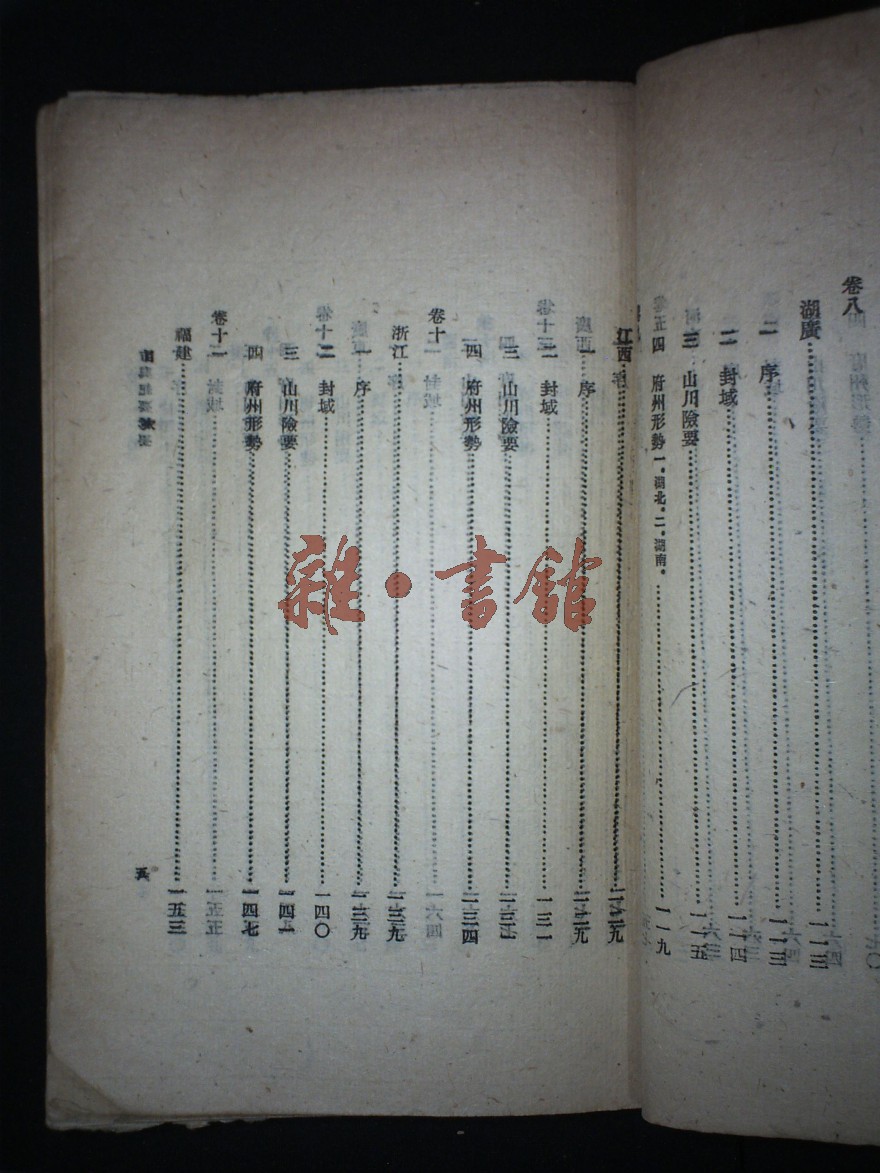 卷八
湖廣……一一三
序……一一三
二 封域……一一四
三 山川險要……一一五
四 府州形勢 一.湖北.二.湖南.……一一九
江西……一二九
一 序……一二九
二 封域……一三一
三 山川險要……
四 府州形勢……一三四
卷十
浙江……一三九
一 序……一三九
二 封域……一四〇
三 山川險要……一四一
四 府州形勢……一四七
卷十一
福建……一五三
五
雜·書館